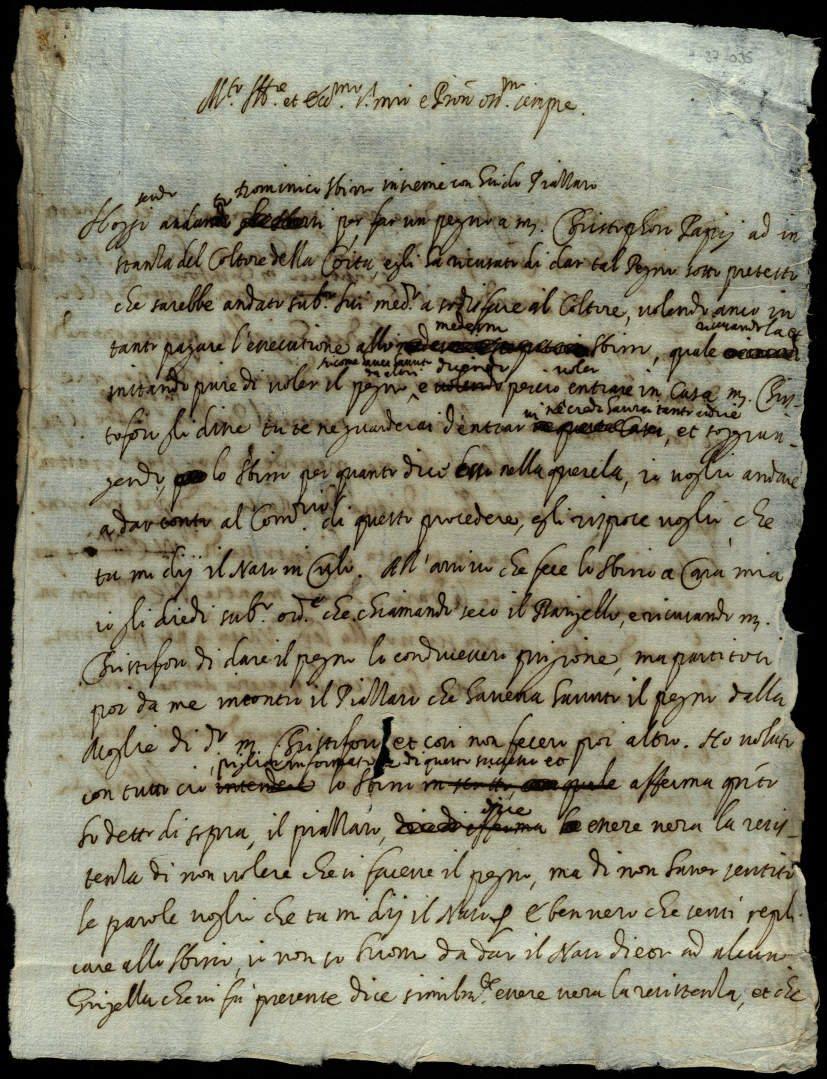 M.to Ill.re et Ecc.mo S.r mio e Pron oss.m sempre.
Dominico Sbirro insieme con Guido Piallaro
Hoggi andando per far un pegno a m. Christophoro Papij ad in
stanza del Coltore della Colta, egli ha ricusato di dar tal Pegno sotto pretesto
che sarebbe andato sub.o lui med.o a sodisfare al Coltore, volendo anco in
medesimo ricusando la et
tanto pagare l'essecutione allo Sbirro, quale
dicendo voler
insistendo pure di voler il pegno, e volendo perciò entrare in Casa m. Chri-
vi né credi haver tanto ardire
stoforo gli disse tu te ne guarderai d'entrar in questa Casa, et soggiun-
gendo, lo Sbirro per quanto dice nella querela, io voglio andare
a dar conto al Com.rio di questo procedere, egli rispose voglio che
tu mi dij il Naso in Culo. All'arrivo che fece lo Sbirro a Casa mia
io gli diedi sub.o ord.e che chiamando seco il Barigello, e ricusando m.
Christoforo di dare il pegno lo conducessero prigione, ma partitosi
poi da me incontrò il Piallaro che haveva havuto il pegno dalla
Moglie di d.o m. Christoforo, et così non fecero poi altro. Ho voluto
pigliar informatione di questo successo et
con tutto ciò intendere lo Sbirro in scritto, quale afferma q.to
dice
ho detto di sopra, il piallaro, essere vera la resis-
tenza di non volere che si facesse il pegno, ma di non haver sentito
le parole voglio che tu mi dij il Naso E ben vero che sentì repli-
care allo Sbirro, io non so huomo da dar il Naso dietro ad alcuno
Grigella che vi fu presente dice similm.te essere vera la resistenza, et che